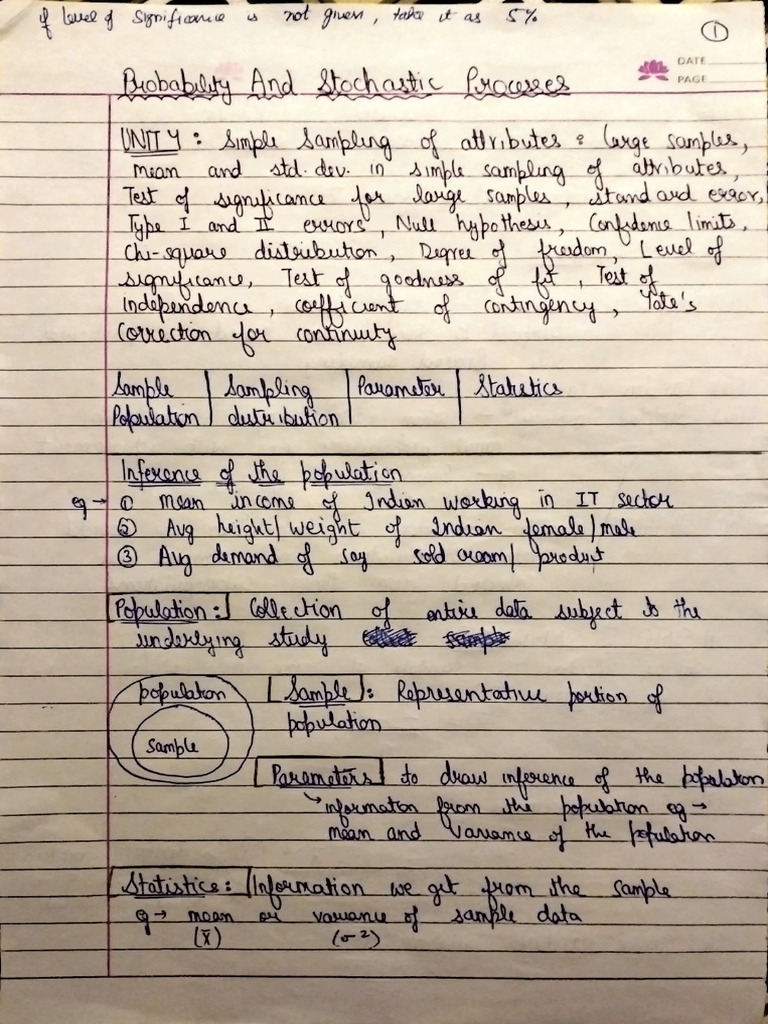 if level of significance is not given, take it as 5%
1
DATE
PAGE
Probability And Stochastic Processes
UNIT 4: Simple Sampling of attributes : large samples,
mean and std. dev. in simple sampling of attributes,
Test of significance for large samples, standard error,
Type I and II errors, Null hypothesis, Confidence limits,
Chi-square distribution, Degree of freedom, Level of
significance, Test of goodness of fit, Test of
independence, coefficient of contingency, Yate's
Correction for continuity
Sample | Sampling | Parameter | Statistics
Population | distribution |
Inference of the population
eg → ① Mean income of Indian working in IT sector
② Avg height/weight of Indian female/male
③ Avg demand of say sold cream/ product
Population: Collection of entire data subject to the
underlying study
population
sample
Sample: Representative portion of
population
Parameters to draw inference of the population
information from the population eg →
mean and variance of the population
Statistics: Information we get from the sample
eg → mean or variance of sample data
(x̄) (σ²)